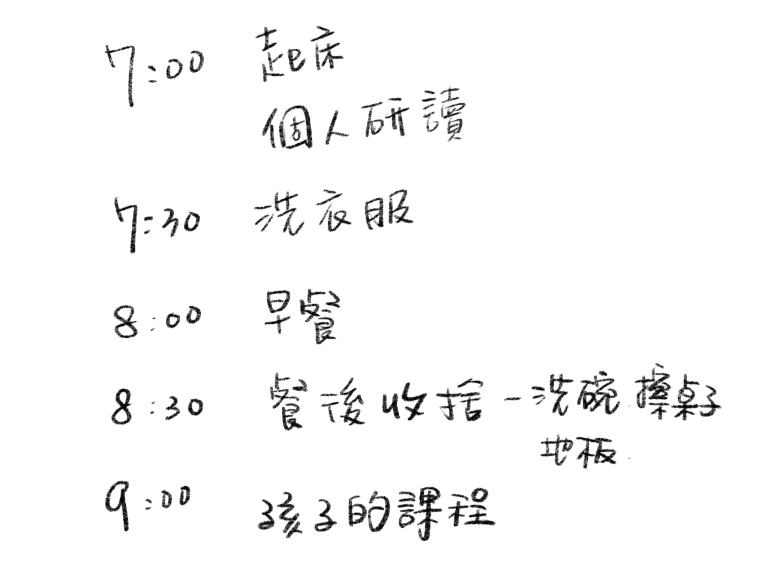 7:00 起床
個人研讀
7:30 洗衣服
8:00 早餐
8:30 餐後收捨-洗碗 擦桌子
地板
9:00 孩子的課程